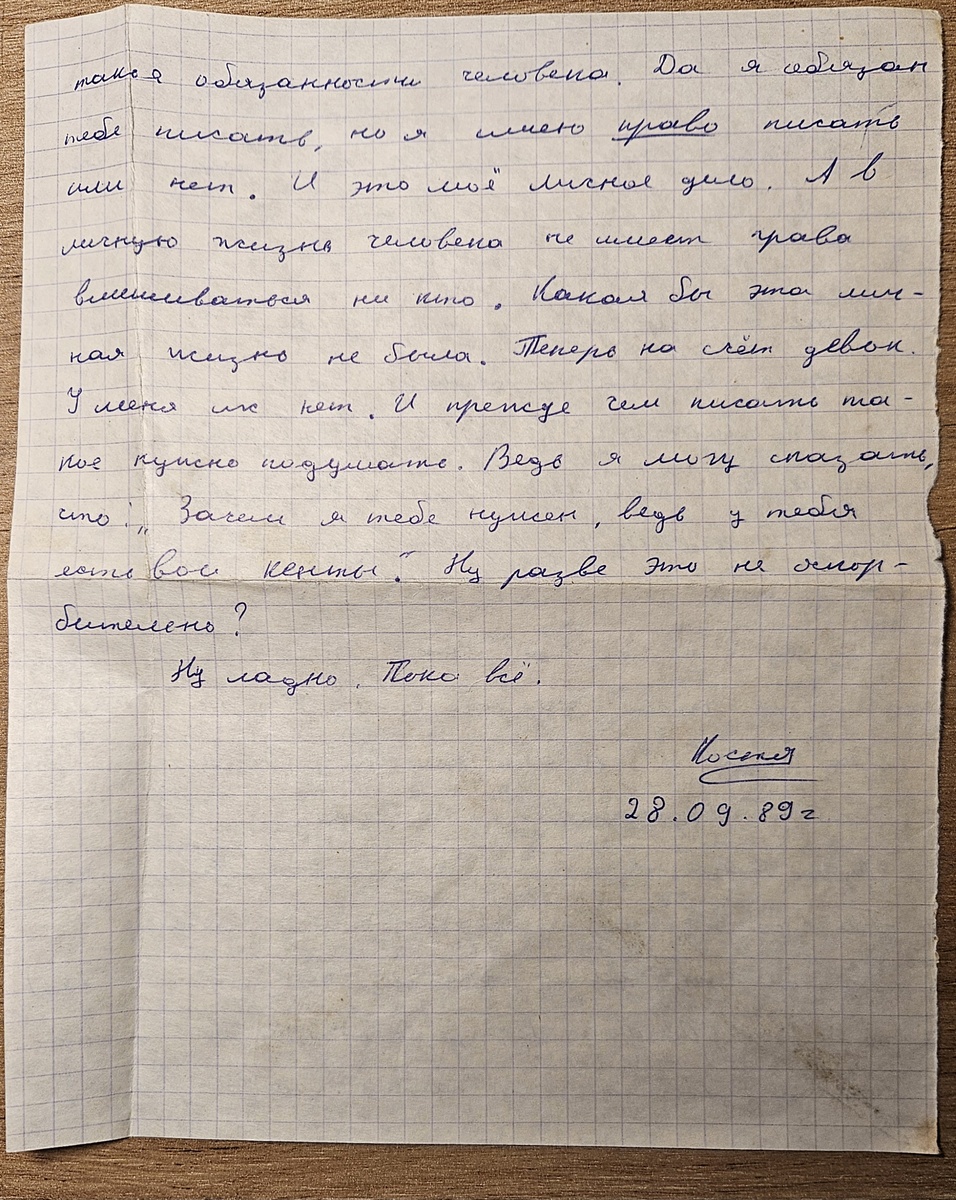 такая обязанности человека. Да я обязан
тебе писать, но я имею право писать
или нет. И это моё личное дело. А в
личную жизнь человека не имеет права
вмешиваться ни кто. Какая бы эта лич-
ная жизнь не была. Теперь на счёт девок.
У меня их нет. И прежде чем писать та-
кое нужно подумать. Ведь я могу сказать,
что: „Зачем я тебе нужен, ведь у тебя
есть свои кенты". Ну разве это не оскор-
бительно?
Ну ладно. Пока всё.
Костя
28.09.89г